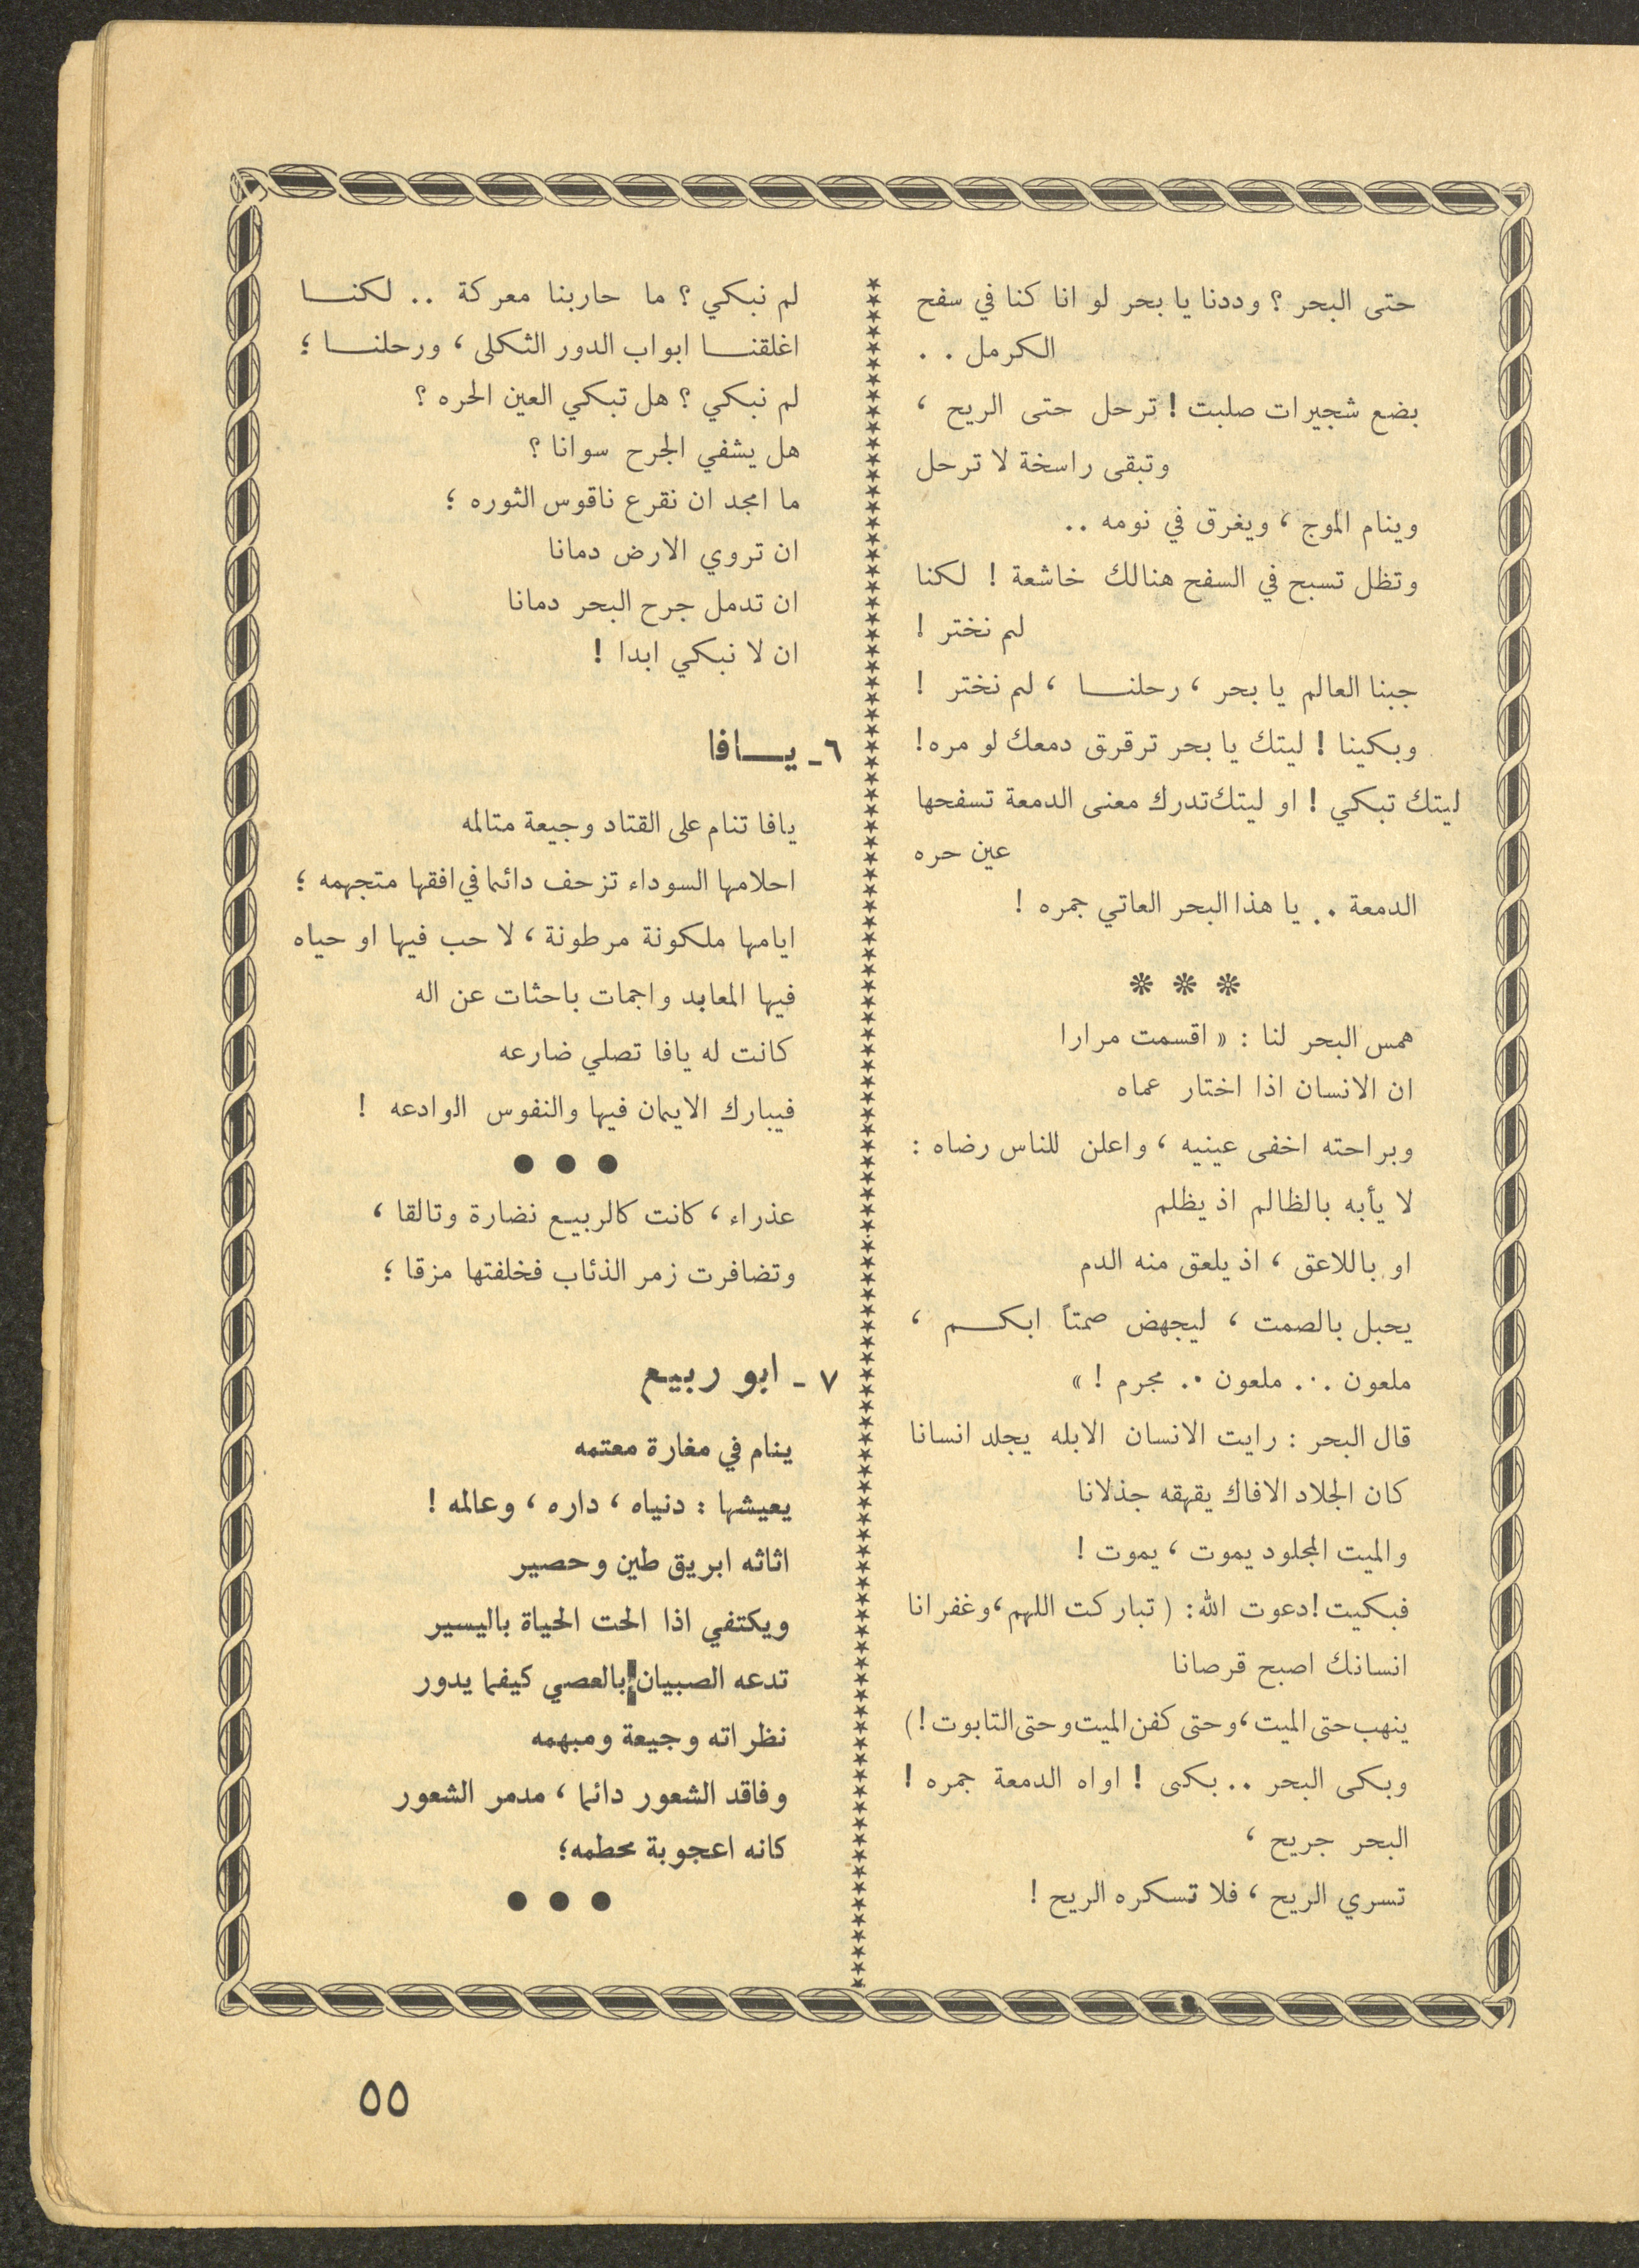 حتى البحر ؟ وددنا يا بحر لو انا كنا في سفح
الكرمل . .
بضع شجيرات صلبت ! ترحل حتى الريح ،
وتبقى راسخة لا ترحل
وينام الموج ، ويغرق في نومه ..
وتظل تسبح في السفح هنالك خاشعة ! لكنا
لم نختر !
جبنا العالم يا بحر ، رحلنا ، لم نختر !
وبكينا ! ليتك يا بحر ترقرق دمعك لو مره !
ليتك تبكي ! او ليتك تدرك معنى الدمعة تسفحها
عين حره
الدمعة .. يا هذا البحر العاتي جمره !
* * *
همس البحر لنا : « اقسمت مرارا
ان الانسان اذا اختار عماه
وبراحته اخفى عينيه ، واعلن للناس رضاه :
لا يأبه بالظالم اذ يظلم
او باللاعق ، اذ يلعق منه الدم
يحبل بالصمت ، ليجهض صمتاً ابكم ،
ملعون ... ملعون .. مجرم ! »
قال البحر : رايت الانسان الابله يجلد انسانا
كان الجلاد الافاك يقهقه جذلانا
والميت المجلود يموت ، يموت !
فبكيت ! دعوت الله : ( تباركت اللهم ، وغفرانا
انسانك اصبح قرصانا
ينهب حتى الميت ، وحتى كفن الميت وحتى التابوت ! )
وبكى البحر .. بكى ! اواه الدمعة جمره !
البحر جريح ،
تسري الريح ، فلا تسكره الريح !
لم نبكي ؟ ما حاربنا معركة .. لكنا
اغلقنا ابواب الدور الثكلى ، ورحلنا ؛
لم نبكي ؟ هل تبكي العين الحره ؟
هل يشفي الجرح سوانا ؟
ما امجد ان نقرع ناقوس الثوره ؛
ان تروي الارض دمانا
ان تدمل جرح البحر دمانا
ان لا نبكي ابدا !
٦ ـ يافا
يافا تنام على القتاد وجيعة متالمه
احلامها السوداء تزحف دائما في افقها متجهمه ؛
ايامها ملكونة مرطونة ، لا حب فيها او حياه
فيها المعابد واجمات باحثات عن اله
كانت له يافا تصلي ضارعه
فيبارك الايمان فيها والنفوس الوادعه !
● ● ●
عذراء ، كانت كالربيع نضارة وتالقا ،
وتضافرت زمر الذئاب فخلفتها مزقا ؛
٧ ـ ابو ربيع
ينام في مغارة معتمه
يعيشها : دنياه ، داره ، وعالمه !
اثاثه ابريق طين وحصير
ويكتفي اذا الحت الحياة باليسير
تدعه الصبيان بالعصي كيفما يدور
نظراته وجيعة ومبهمه
وفاقد الشعور دائما ، مدمر الشعور
كانه اعجوبة محطمه ؛
● ● ●
٥٥